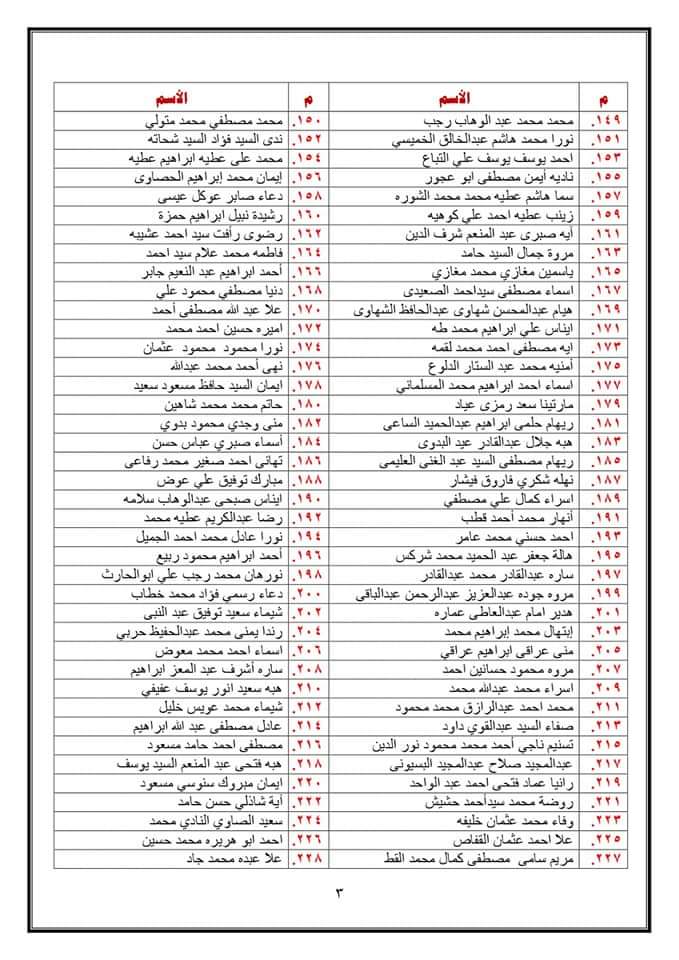 م الأسم م الأسم
١٤٩. محمد محمد عبد الوهاب رجب ١٥٠. محمد مصطفي محمد متولي
١٥١. نورا محمد هاشم عبدالخالق الخميسي ١٥٢. ندى السيد فؤاد السيد شحاته
١٥٣. احمد يوسف يوسف علي التباع ١٥٤. محمد على عطيه ابراهيم عطيه
١٥٥. ناديه أيمن مصطفى ابو عجور ١٥٦. إيمان محمد إبراهيم الحصاوى
١٥٧. سما هاشم عطيه محمد محمد الشوره ١٥٨. دعاء صابر عوكل عيسى
١٥٩. زينب عطيه احمد علي كوهيه ١٦٠. رشيدة نبيل ابراهيم حمزة
١٦١. أيه صبرى عبد المنعم شرف الدين ١٦٢. رضوى رأفت سيد احمد عشيبه
١٦٣. مروة جمال السيد حامد ١٦٤. فاطمه محمد علام سيد احمد
١٦٥. ياسمين مغازي محمد مغازي ١٦٦. أحمد ابراهيم عبد النعيم جابر
١٦٧. اسماء مصطفي سيداحمد الصعيدى ١٦٨. دنيا مصطفي محمود علي
١٦٩. هيام عبدالمحسن شهاوى عبدالحافظ الشهاوى ١٧٠. علا عبد الله مصطفى أحمد
١٧١. ايناس علي ابراهيم محمد طه ١٧٢. اميره حسين احمد محمد
١٧٣. ايه مصطفى احمد محمد لقمه ١٧٤. نورا محمود محمود عثمان
١٧٥. أمنيه محمد عبد الستار الدلوع ١٧٦. نهى أحمد محمد عبدالله
١٧٧. اسماء احمد ابراهيم محمد المسلماني ١٧٨. ايمان السيد حافظ مسعود سعيد
١٧٩. مارتينا سعد رمزى عياد ١٨٠. حاتم محمد محمد شاهين
١٨١. ريهام حلمى ابراهيم عبدالحميد الساعى ١٨٢. منى وجدي محمود بدوي
١٨٣. هبه جلال عبدالقادر عيد البدوى ١٨٤. أسماء صبري عباس حسن
١٨٥. ريهام مصطفى السيد عبد الغنى العليمى ١٨٦. تهانى احمد صغير محمد رفاعى
١٨٧. نهله شكري فاروق فيشار ١٨٨. مبارك توفيق علي عوض
١٨٩. اسراء كمال علي مصطفي ١٩٠. ايناس صبحى عبدالوهاب سلامه
١٩١. أنهار محمد أحمد قطب ١٩٢. رضا عبدالكريم عطيه محمد
١٩٣. احمد حسني محمد عامر ١٩٤. نورا عادل محمد احمد الجميل
١٩٥. هالة جعفر عبد الحميد محمد شركس ١٩٦. أحمد ابراهيم محمود ربيع
١٩٧. ساره عبدالقادر محمد عبدالقادر ١٩٨. نورهان محمد رجب علي ابوالحارث
١٩٩. مروه جوده عبدالعزيز عبدالرحمن عبدالباقى ٢٠٠. دعاء رسمي فؤاد محمد خطاب
٢٠١. هدير امام عبدالعاطى عماره ٢٠٢. شيماء سعيد توفيق عبد النبى
٢٠٣. إبتهال محمد إبراهيم محمد ٢٠٤. رندا يمنى محمد عبدالحفيظ حربي
٢٠٥. منى عراقى ابراهيم عراقي ٢٠٦. اسماء احمد محمد معوض
٢٠٧. مروه محمود حسانين احمد ٢٠٨. ساره أشرف عبد المعز ابراهيم
٢٠٩. اسراء محمد عبدالله محمد ٢١٠. هبه سعيد انور يوسف عفيفي
٢١١. محمد احمد عبدالرازق محمد محمود ٢١٢. شيماء محمد عويس خليل
٢١٣. صفاء السيد عبدالقوي داود ٢١٤. عادل مصطفى عبد الله ابراهيم
٢١٥. تسنيم ناجي أحمد محمد محمود نور الدين ٢١٦. مصطفى احمد حامد مسعود
٢١٧. عبدالمجيد صلاح عبدالمجيد البسيونى ٢١٨. هبه فتحى عبد المنعم السيد يوسف
٢١٩. رانيا عماد فتحى احمد عبد الواحد ٢٢٠. ايمان مبروك سنوسي مسعود
٢٢١. روضة محمد سيدأحمد حشيش ٢٢٢. آية شاذلي حسن حامد
٢٢٣. وفاء محمد عثمان خليفه ٢٢٤. سعيد الصاوي النادي محمد
٢٢٥. علا احمد عثمان القفاص ٢٢٦. احمد ابو هريره محمد حسين
٢٢٧. مريم سامى مصطفى كمال محمد القط ٢٢٨. علا عبده محمد جاد
٣